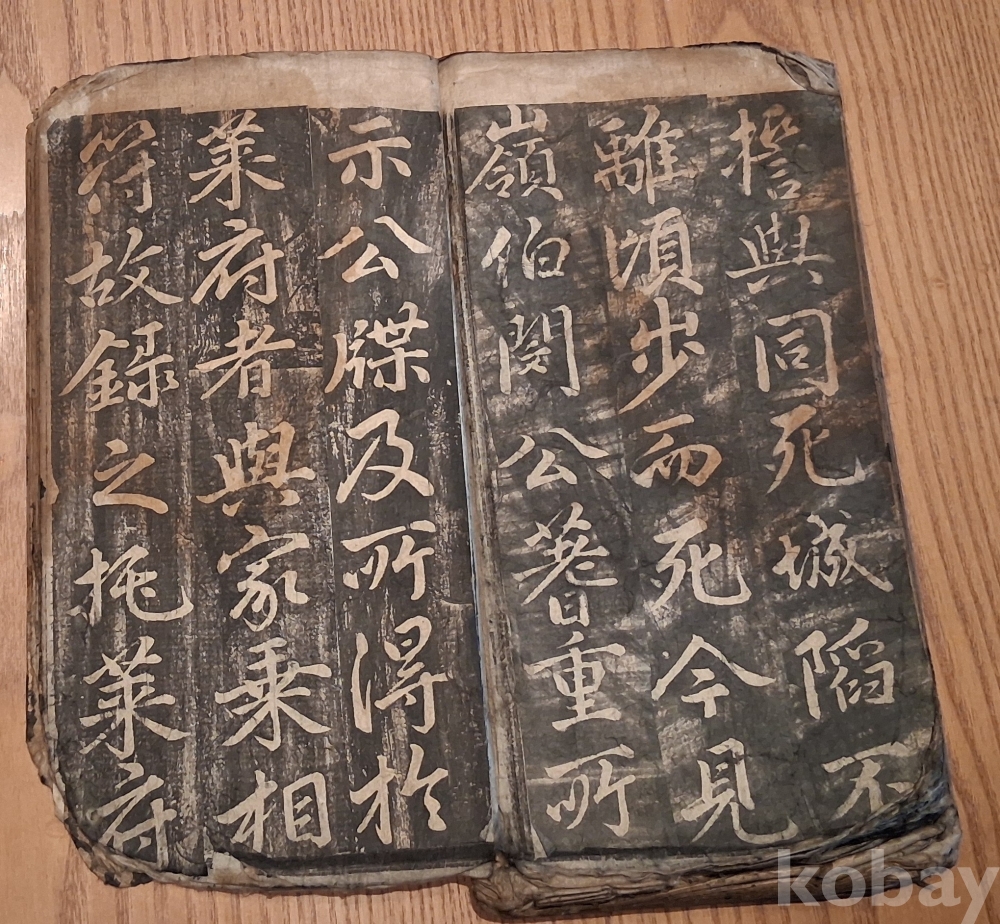 誓與同死城陷不
離頃步而死今見
嶺伯閔公蓍重所
示公牒及所得於
萊府者與家乘相
符故錄之托萊府
kobay